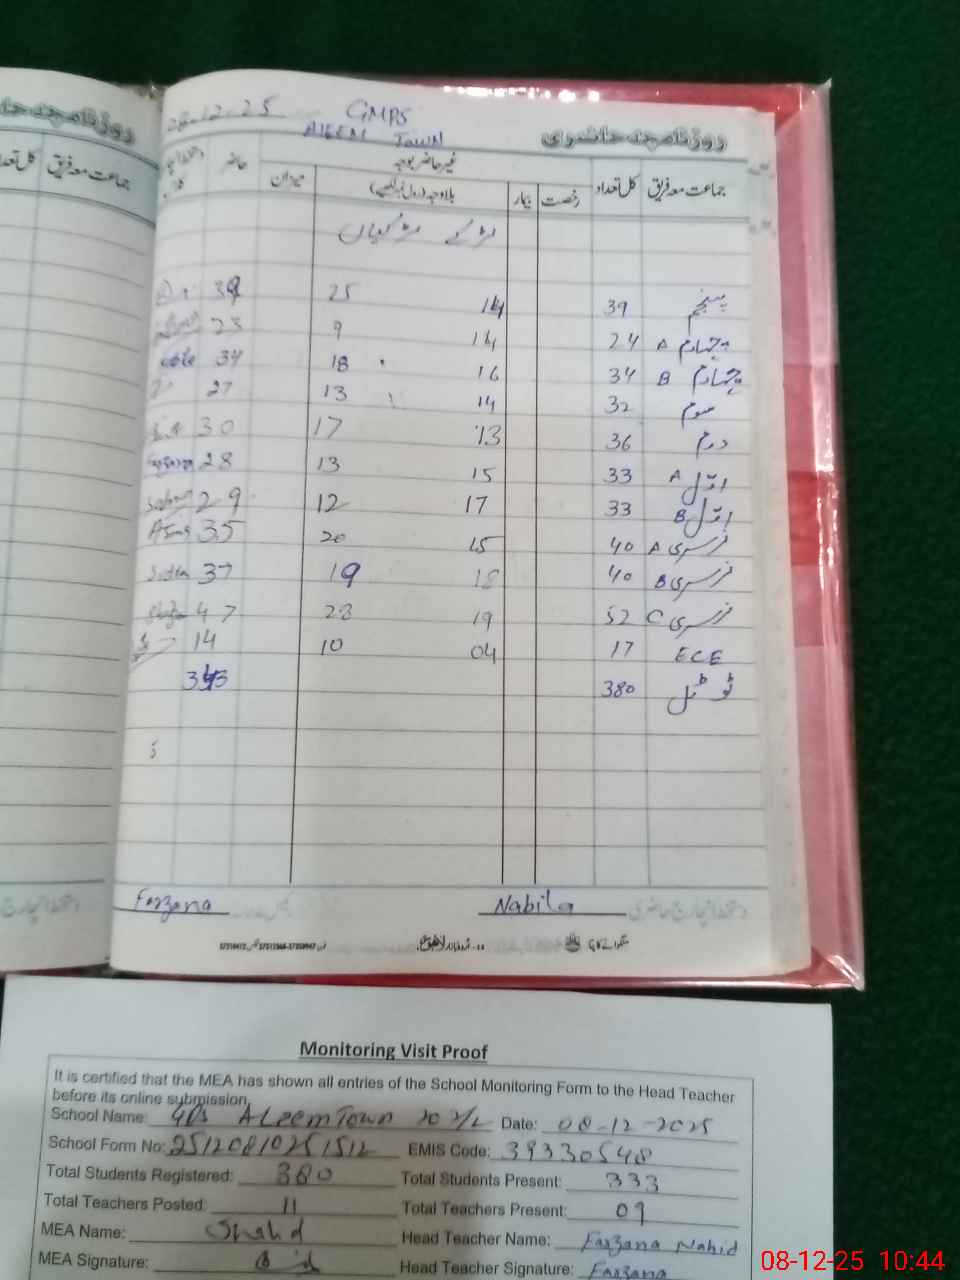 روزنامچہ حاضری
GMPS
ALEEM TOWN
جماعت معہ فریق کل تعداد رخصت بیمار غیر حاضر بوجہ بلاوجہ میزان حاضر
لڑکے لڑکیاں
پنجم 39 14 25 39
چہارم A 24 14 9 23
چہارم B 34 16 18 34
سوم 32 14 13 27
دوم 36 13 17 30
اول A 33 15 13 28 Farzana
اول B 33 17 12 29
نرسری A 40 15 20 35
نرسری B 40 18 19 37
نرسری C 52 19 28 47
ECE 17 04 10 14
ٹوٹل 380
دستخط انچارج حاضری Nabila Farzana
جماعت معہ فریق کل تعداد
Monitoring Visit Proof
It is certified that the MEA has shown all entries of the School Monitoring Form to the Head Teacher
before its online submission.
School Name: GPS ALeemTown Date: 08-12-2025
School Form No: 25120810251512 EMIS Code: 39330548
Total Students Registered: 380 Total Students Present: 333
Total Teachers Posted: 11 Total Teachers Present: 09
MEA Name: Shahid Head Teacher Name: Farzana Nahid
MEA Signature: Head Teacher Signature: Farzana
08-12-25 10:44